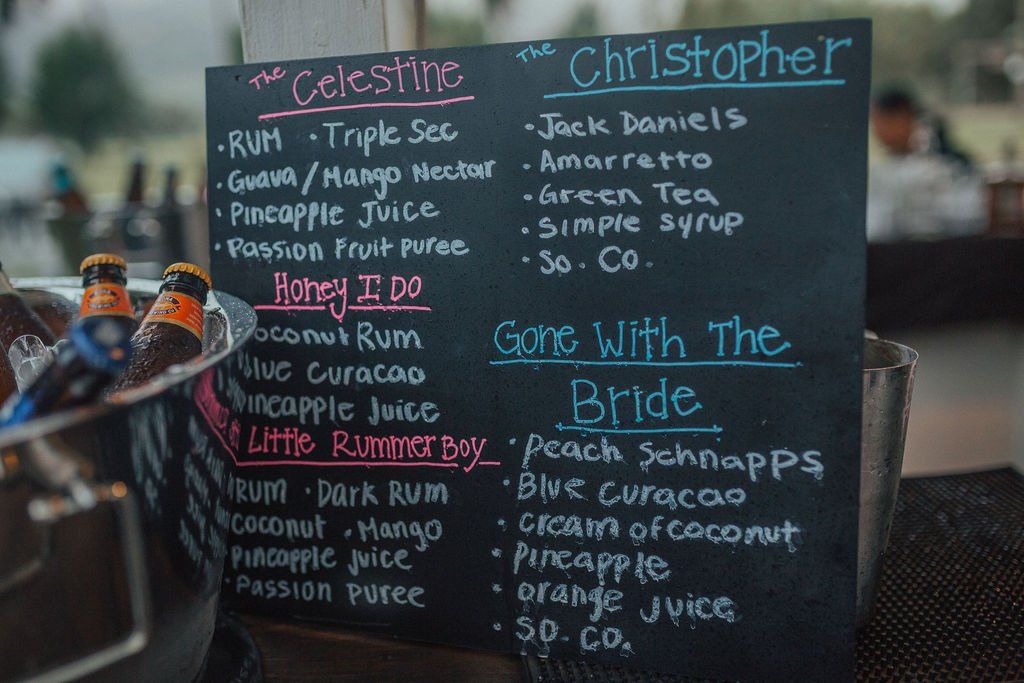 The Celestine
· RUM · Triple Sec
· Guava / Mango Nectar
· Pineapple Juice
· Passion Fruit puree
Honey I Do
oconut Rum
Blue Curacao
Pineapple Juice
Little Rummer Boy
RUM · Dark Rum
Coconut · Mango
Pineapple juice
· Passion puree
The Christopher
· Jack Daniels
· Amarretto
· Green Tea
simple syrup
· So. Co.
Gone With The
Bride
· Peach Schnapps
· Blue Curacao
· cream of coconut
· pineapple
· orange juice
· So. Co.